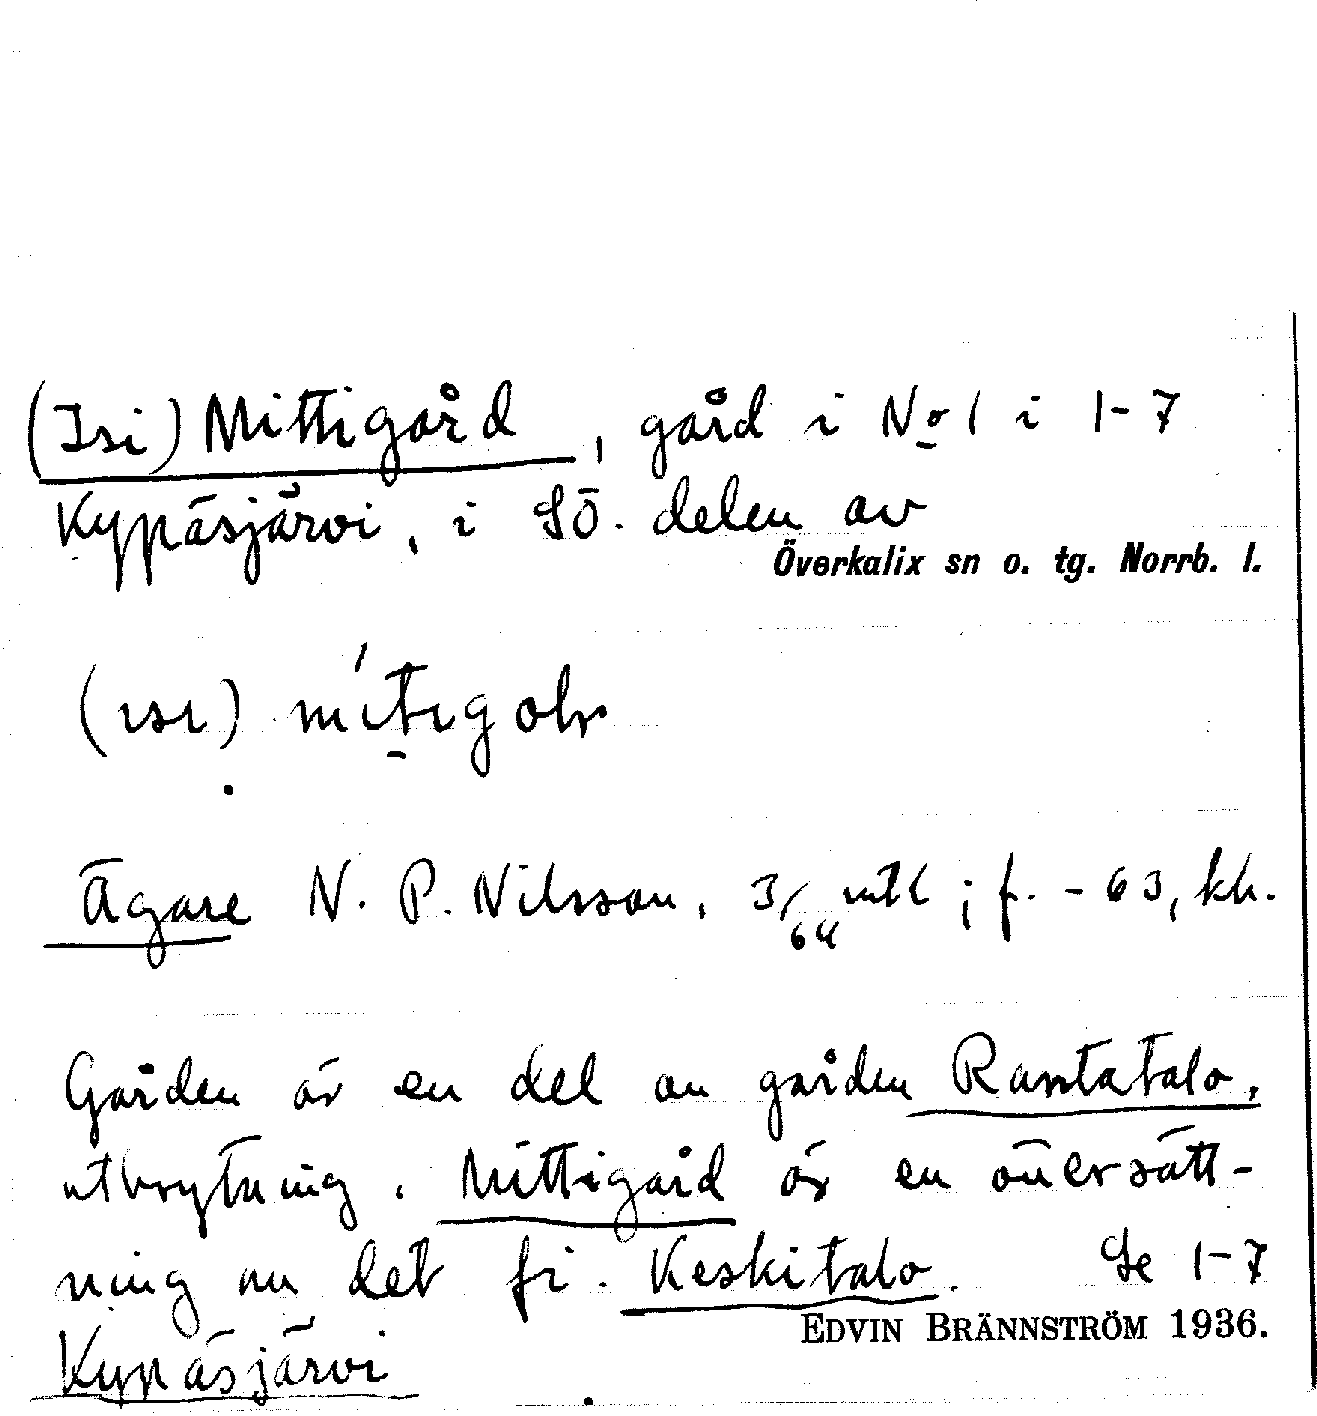 (Isi) Mittigård, gård i No 1 i 1-7
Kypäsjärvi, i SÖ. delen av
Överkalix sn o. tg. Norrb. l.
(ısı) mítıgoh
Ägare N. P. Nilsson, 3/64 mtl; f. -63, kh.
Gården är en del av gården Rantatalo,
utbrytning. Mittigård är en översätt-
ning av det fi. Keskitalo. Se 1-7
EDVIN BRÄNNSTRÖM 1936.
Kypäsjärvi